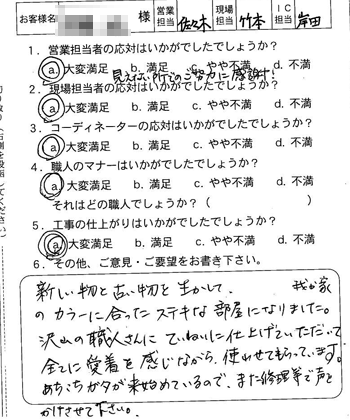 お客様名 様 営業担当 佐々木 現場担当 竹本 IC担当 岸田
1. 営業担当者の応対はいかがでしたでしょうか?
a. 大変満足 b. 満足 c. やや不満 d. 不満
見えない所でのご努力に感謝!
2. 現場担当者の応対はいかがでしたでしょうか?
a. 大変満足 b. 満足 c. やや不満 d. 不満
3. コーディネーターの応対はいかがでしたでしょうか?
a. 大変満足 b. 満足 c. やや不満 d. 不満
4. 職人のマナーはいかがでしたでしょうか?
a. 大変満足 b. 満足 c. やや不満 d. 不満
それはどの職人でしょうか?( )
5. 工事の仕上がりはいかがでしたでしょうか?
a. 大変満足 b. 満足 c. やや不満 d. 不満
6. その他、ご意見・ご要望をお書き下さい。
新しい物と古い物を生かして、 我が家
のカラーに合ったステキな部屋になりました。
沢山の職人さんにていねいに仕上げていただいて
全てに愛着を感じながら、使わせてもらっています。
あちこちガタが来始めているので、また修理等で声を
かけさせて下さい。